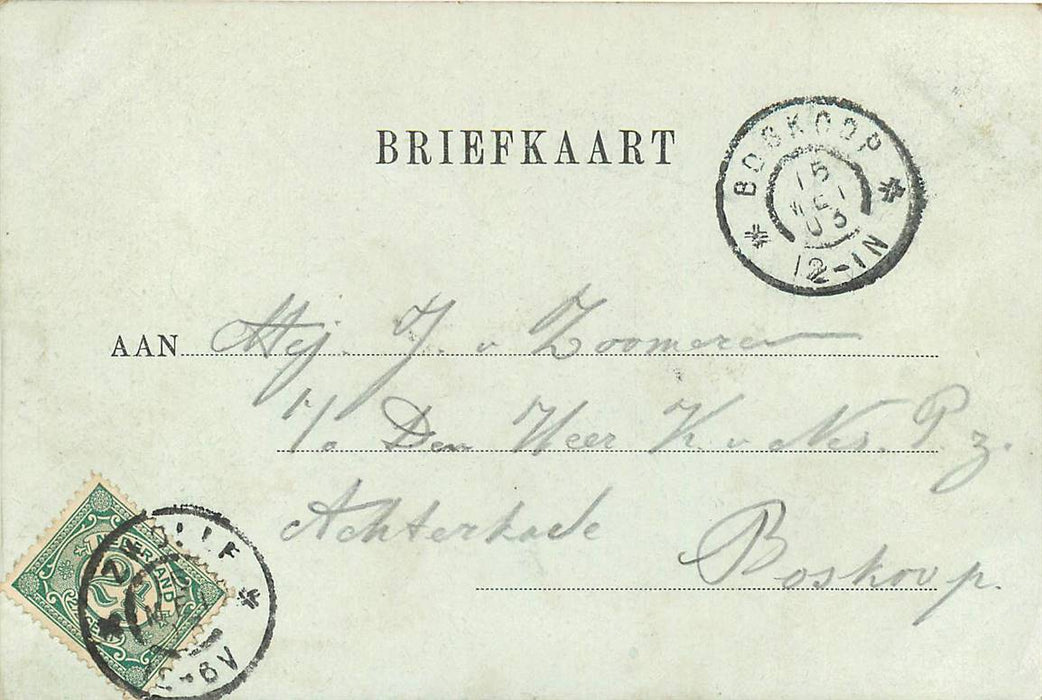 BRIEFKAART
BOSKOOP
15
MEI
03
12-1N
AAN Mej. J. v Zoomeren
p/a Den Heer K. v Nes. P. z.
Achterkade
Boskoop.
NEDERLAND
2½
ZWOLLE
MEI
6-8V